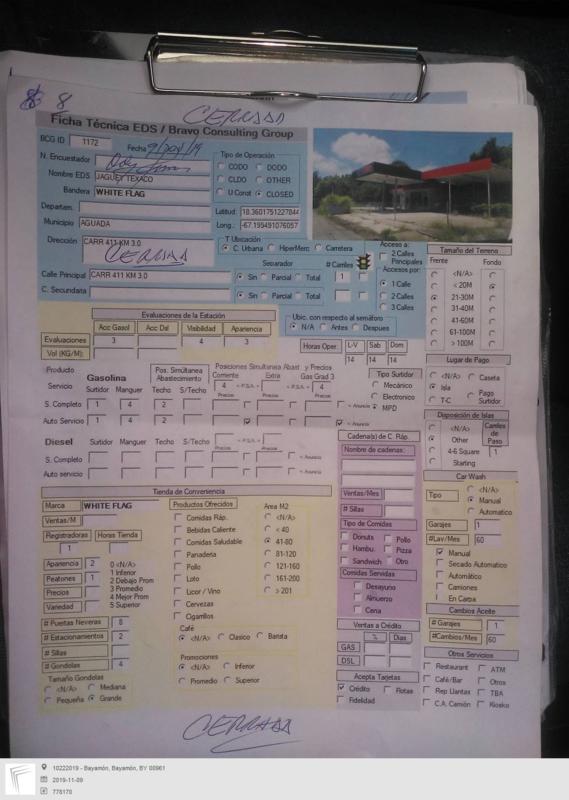 8
CERRADO
Ficha Técnica EDS / Bravo Consulting Group
BCG ID 1172
Fecha
N. Encuestador
Nombre EDS JAGUEY TEXACO
Bandera WHITE FLAG
Departam.
Municipio AGUADA
Dirección CARR 411 KM 3.0
CERRADO
Calle Principal CARR 411 KM 3.0
C. Secundaria
Tipo de Operación
CODO DODO
CLDO OTHER
U Const CLOSED
Latitud: 18.3601751227844
Long.: -67.195491076057
T Ubicación
C. Urbana HiperMerc Carretera
Separador # Carriles
Sin Parcial Total 1
Sin Parcial Total
Acceso a:
2 Calles Principales
Accesos por:
1 Calle
2 Calles
3 Calles
Ubic. con respecto al semáforo
N/A Antes Despues
Tamaño del Terreno
Frente Fondo
<N/A>
< 20M
21-30M
31-40M
41-60M
61-100M
> 100M
Evaluaciones de la Estación
Acc Gasol Acc Dsl Visibilidad Apariencia
Evaluaciones 3 4 3
Vol (KG/M):
Horas Oper. L-V Sab Dom
14 14 14
Lugar de Pago
<N/A> Caseta
Isla
T-C Pago Surtidor
Producto
Servicio
Gasolina
Surtidor Manguer Techo S/Techo
Pos. Simultánea Abastecimiento
Posiciones Simultanea Abast y Precios
Corriente Extra Gas Grad 3
4 < P.S.A. > < P.S.A. > 4
Precios Precios Precios
S. Completo 1 4 2
Auto Servicio 1 4 2
Tipo Surtidor
Mecánico
Electronico
MPD
Diesel Surtidor Manguer Techo S/Techo
S. Completo
Auto servicio
Disposición de Islas
<N/A>
Other
4-6 Square
Starting
Carriles de Paso
1
Cadena(s) de C. Ráp.
Nombre de cadenas:
Ventas/Mes
# Sillas
Tipo de Comidas
Donuts Pollo
Hambu. Pizza
Sandwich Otro
Comidas Servidas
Desayuno
Almuerzo
Cena
Ventas a Crédito
% Dias
GAS
DSL
Acepta Tarjetas
Crédito Flotas
Fidelidad
Car Wash
Tipo
<N/A>
Manual
Automatico
Garajes 1
#Lav/Mes 60
Manual
Secado Automatico
Automático
Camiones
En Carpa
Cambios Aceite
# Garajes 1
#Cambios/Mes 60
Otros Servicios
Restaurant ATM
Café/Bar Otros
Rep Llantas TBA
C.A. Camión Kiosko
Tienda de Conveniencia
Marca WHITE FLAG
Ventas/M
Registradoras Horas Tienda
1
Apariencia 2
Peatones 1
Precios
Variedad
0 <N/A>
1 Inferior
2 Debajo Prom
3 Promedio
4 Mejor Prom
5 Superior
# Puertas Neveras 8
# Estacionamientos 2
# Sillas
# Gondolas 4
Tamaño Gondolas
<N/A> Mediana
Pequeña Grande
Productos Ofrecidos
Comidas Ráp.
Bebidas Caliente
Comidas Saludable
Panaderia
Pollo
Loto
Licor / Vino
Cervezas
Cigarrillos
Area M2
<N/A>
< 40
41-80
81-120
121-160
161-200
> 201
Café
<N/A> Clasico Barista
Promociones
<N/A> Inferior
Promedio Superior
CERRADO
10222019 - Bayamón, Bayamón, BY 00961
2019-11-09
778170